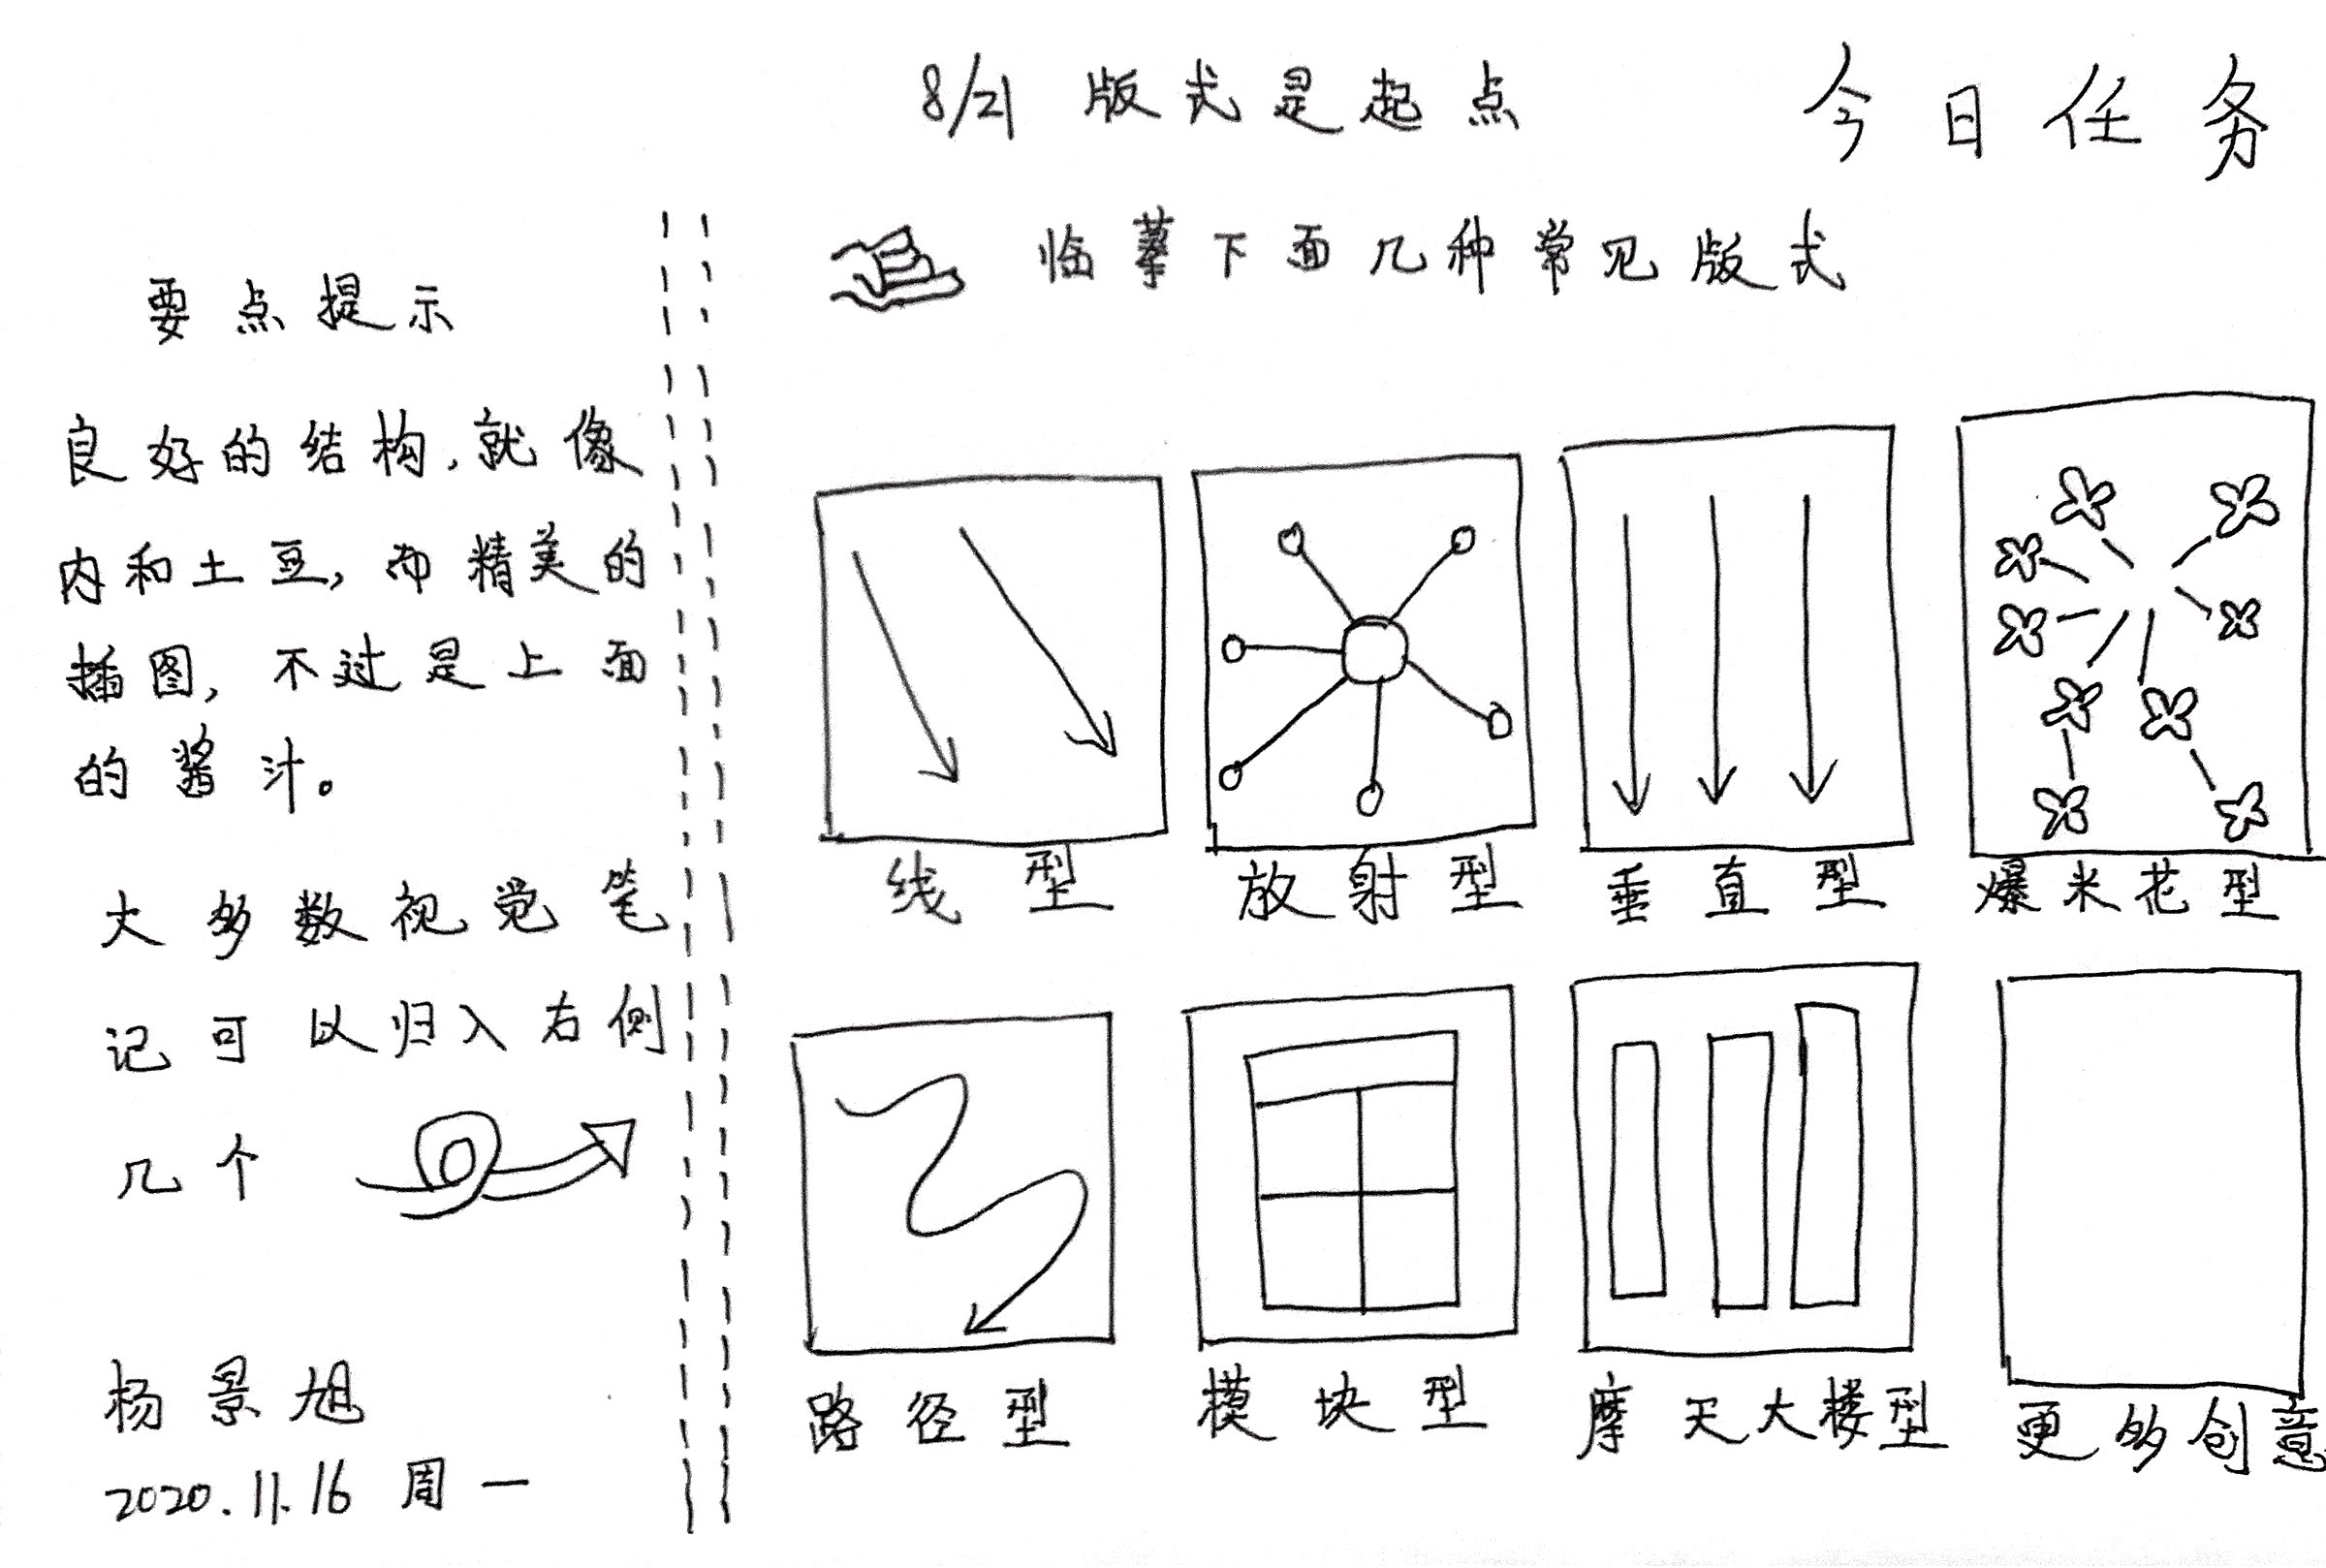 8/21 版式是起点
今日任务
临摹下面几种常见版式
要点提示
良好的结构,就像
内和土豆,而精美的
插图,不过是上面
的酱汁。
大多数视觉笔
记可以归入右侧
几个
杨景旭
2020.11.16 周一
线型
放射型
垂直型
爆米花型
路径型
模块型
摩天大楼型
更多创意